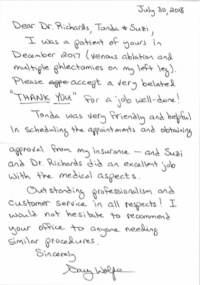 July 30, 2018
Dear Dr. Richards, Tonda & Suzi,
I was a patient of yours in
December 2017 (venous ablation and
multiple phlectomies on my left leg).
Please accept a very belated
"THANK YOU" for a job well-done!
Tonda was very friendly and helpful
in scheduling the appointments and obtaining
approval from my insurance — and Suzi
and Dr. Richards did an excellent job
with the medical aspects.
Outstanding professionalism and
customer service in all respects! I
would not hesitate to recommend
your office to anyone needing
similar procedures.
Sincerely